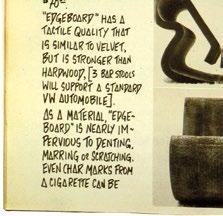 "EDGEBOARD" HAS A
TACTILE QUALITY THAT
IS SIMILAR TO VELVET,
BUT IS STRONGER THAN
HARDWOOD, [3 BAR STOOLS
WILL SUPPORT A STANDARD
VW AUTOMOBILE].
AS A MATERIAL, "EDGE-
BOARD" IS NEARLY IM-
PERVIOUS TO DENTING,
MARRING OR SCRATCHING.
EVEN CHAR MARKS FROM
A CIGARETTE CAN BE